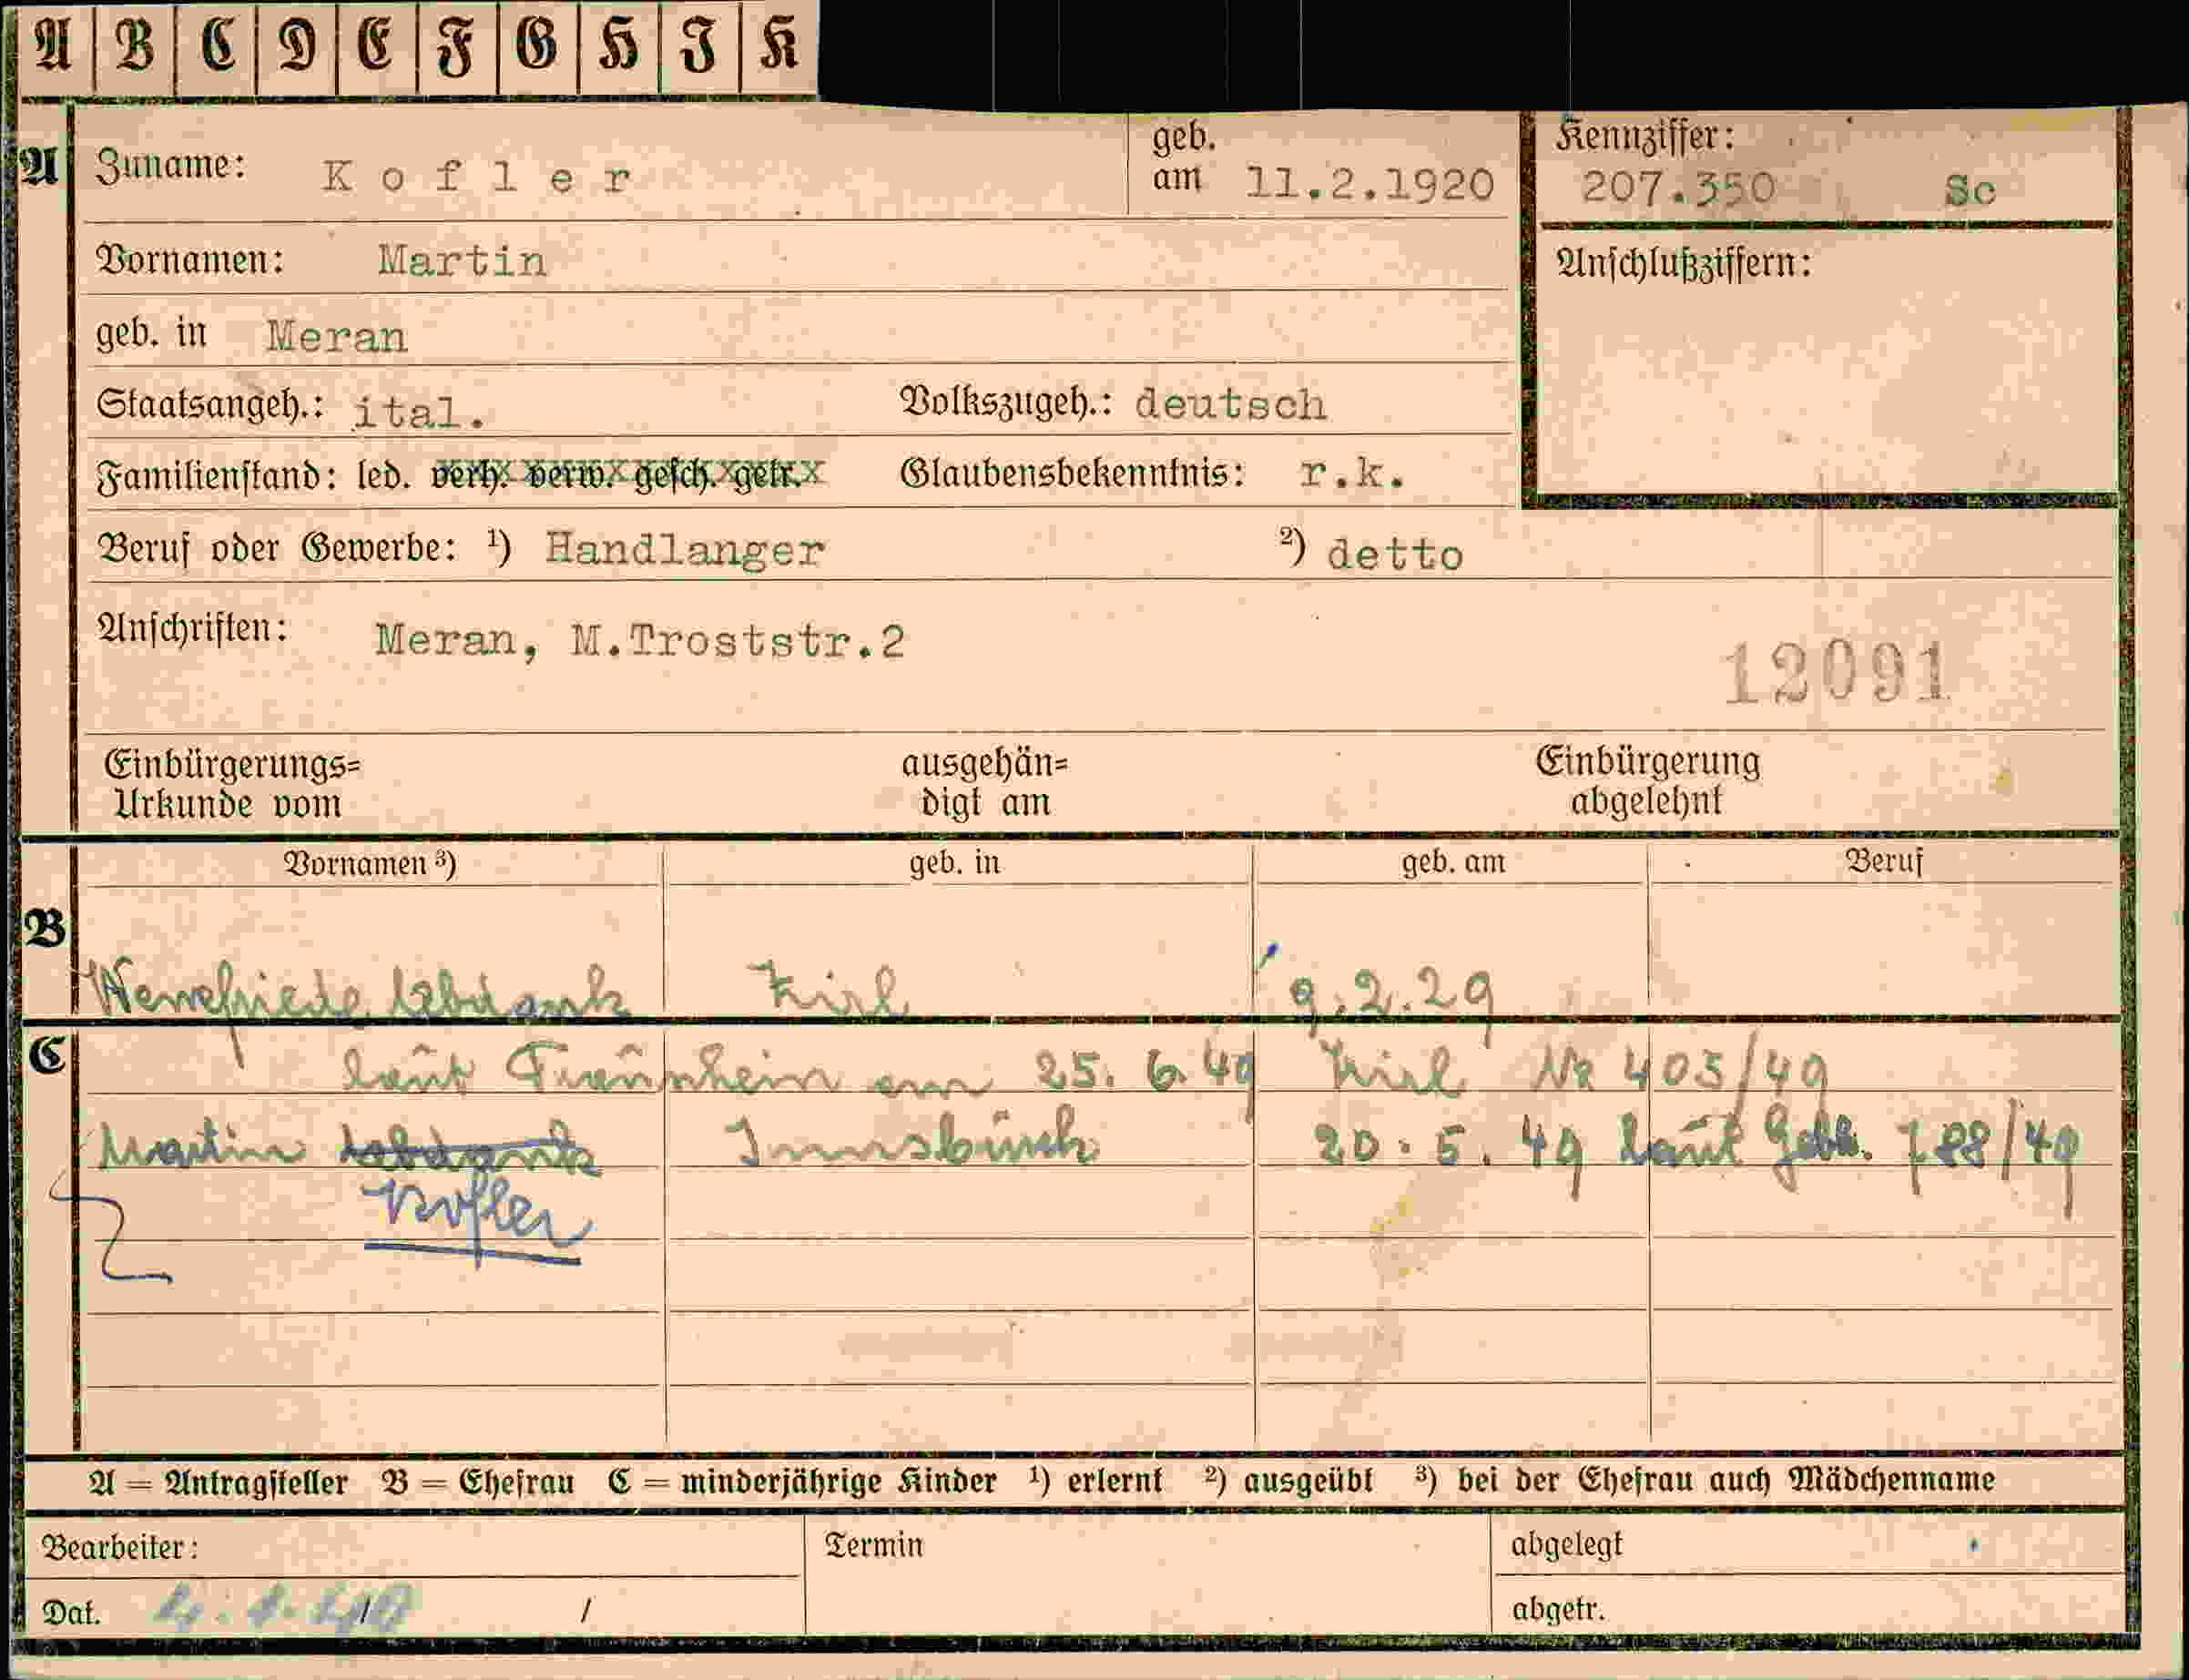 A B C D E F G H I K
A Zuname: Kofler geb. am 11.2.1920 Kennziffer: 207.350 Sc
Vornamen: Martin Anschlußziffern:
geb. in Meran
Staatsangeh.: ital. Volkszugeh.: deutsch
Familienstand: led. verh. verw. gesch. getr. Glaubensbekenntnis: r.k.
Beruf oder Gewerbe: ¹) Handlanger ²) detto
Anschriften: Meran, M.Troststr.2
12091
Einbürgerungs= ausgehän= Einbürgerung
Urkunde vom digt am abgelehnt
Vornamen ³) geb. in geb. am Beruf
B
Zirl 9.2.29
C laut Trauschein am 25. 6. 49 Zirl Nr 403/49
Martin Innsbruck 20. 5. 49 laut Geb. 788/49
Kofler
A = Antragsteller B = Ehefrau C = minderjährige Kinder ¹) erlernt ²) ausgeübt ³) bei der Ehefrau auch Mädchenname
Bearbeiter: Termin abgelegt
Dat. / / abgetr.